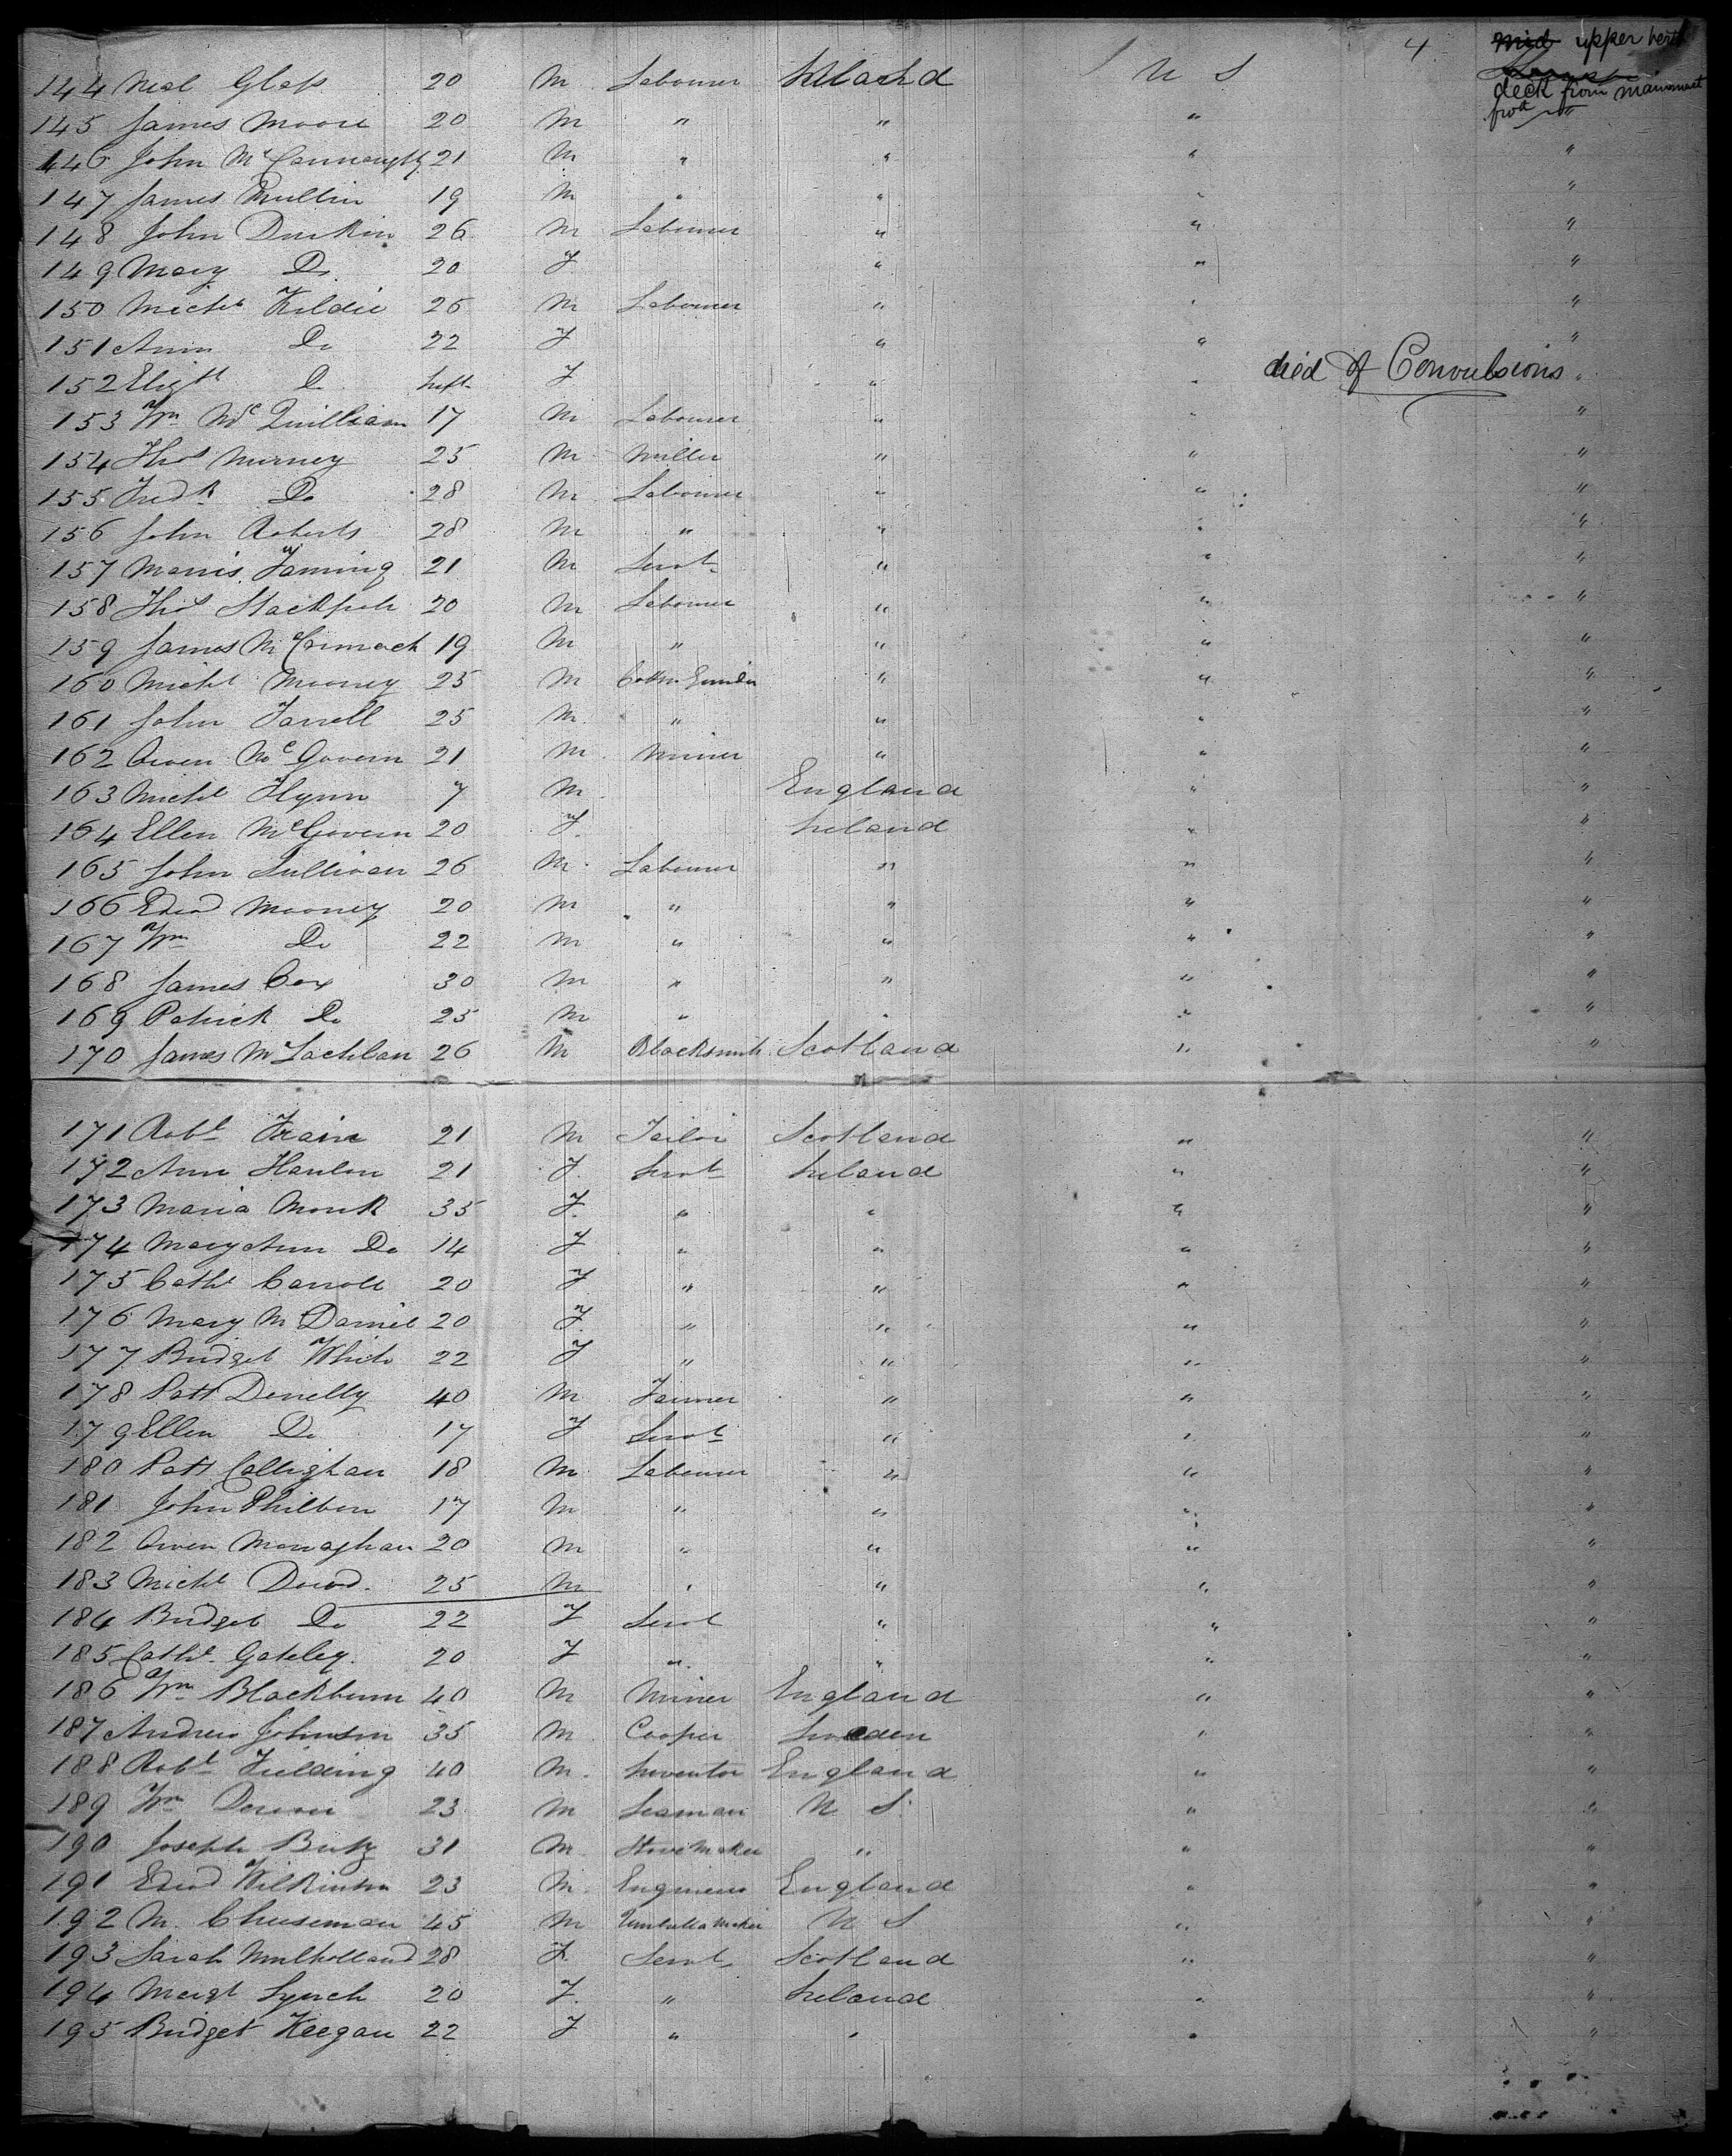 mid upper berth
144 Neal Glass 20 M Labourer Ireland U S 4
deck from mainmast
145 James Moore 20 M " " " "
146 John McConnaughy 21 M " " " "
147 James Mullin 19 M " " " "
148 John Durkin 26 M Labourer " " "
149 Mary Do 20 F " " "
150 Michl Kildie 26 M Labourer " " "
151 Ann Do 22 F " " "
152 Elizth D Inft F " " died of Convulsions "
153 Wm McQuilliam 17 M Labourer " " "
154 Thos Murney 25 M Miller " " "
155 Fredk Do 28 M Labourer " " "
156 John Roberts 28 M " " " "
157 Morris Fanning 21 M Servt " " "
158 Thos Stackpole 20 M Labourer " " "
159 James McCormack 19 M " " " "
160 Michl Mooney 25 M Cotton " " "
161 John Farrell 25 M " " " "
162 Owen McGovern 21 M Miner " " "
163 Michl Flynn 7 M England " "
164 Ellen McGovern 20 F Ireland " "
165 John Sullivan 26 M Labourer " " "
166 Edwd Mooney 20 M " " " "
167 Wm Do 22 M " " " "
168 James Cox 30 M " " " "
169 Patrick Do 25 M " " " "
170 James McLachlan 26 M Blacksmith Scotland " "
171 Robt Frain 21 M Tailor Scotland " "
172 Ann Hanlon 21 F Servt Ireland " "
173 Maria Monk 35 F " " " "
174 Mary Ann Do 14 F " " " "
175 Cathe Carroll 20 F " " " "
176 Mary McDaniel 20 F " " " "
177 Bridget White 22 F " " " "
178 Patt Donelly 40 M Farmer " " "
179 Ellen Do 17 F Servt " " "
180 Patt Callighan 18 M Labourer " " "
181 John Philbin 17 M " " " "
182 Owen Monaghan 20 M " " " "
183 Michl Dowd 25 M " " " "
184 Bridget Do 22 F Servt " " "
185 Cathe Gateley 20 F " " " "
186 Wm Blackburn 40 M Miner England " "
187 Andrew Johnson 35 M Cooper Sweden " "
188 Robt Fielding 40 M Inventor England " "
189 Wm 23 M Seaman U S " "
190 Joseph 31 M Stove Maker " " "
191 Edwd Wilkinson 23 M Engineer England " "
192 M. Cheeseman 45 M Umbrella Maker U S " "
193 Sarah Mulholland 28 F Servt Scotland " "
194 Margt Lynch 20 F " Ireland " "
195 Bridget Keegan 22 F " " " "